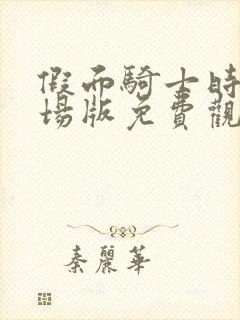 假面騎士時
場版免費觀
秦麗華